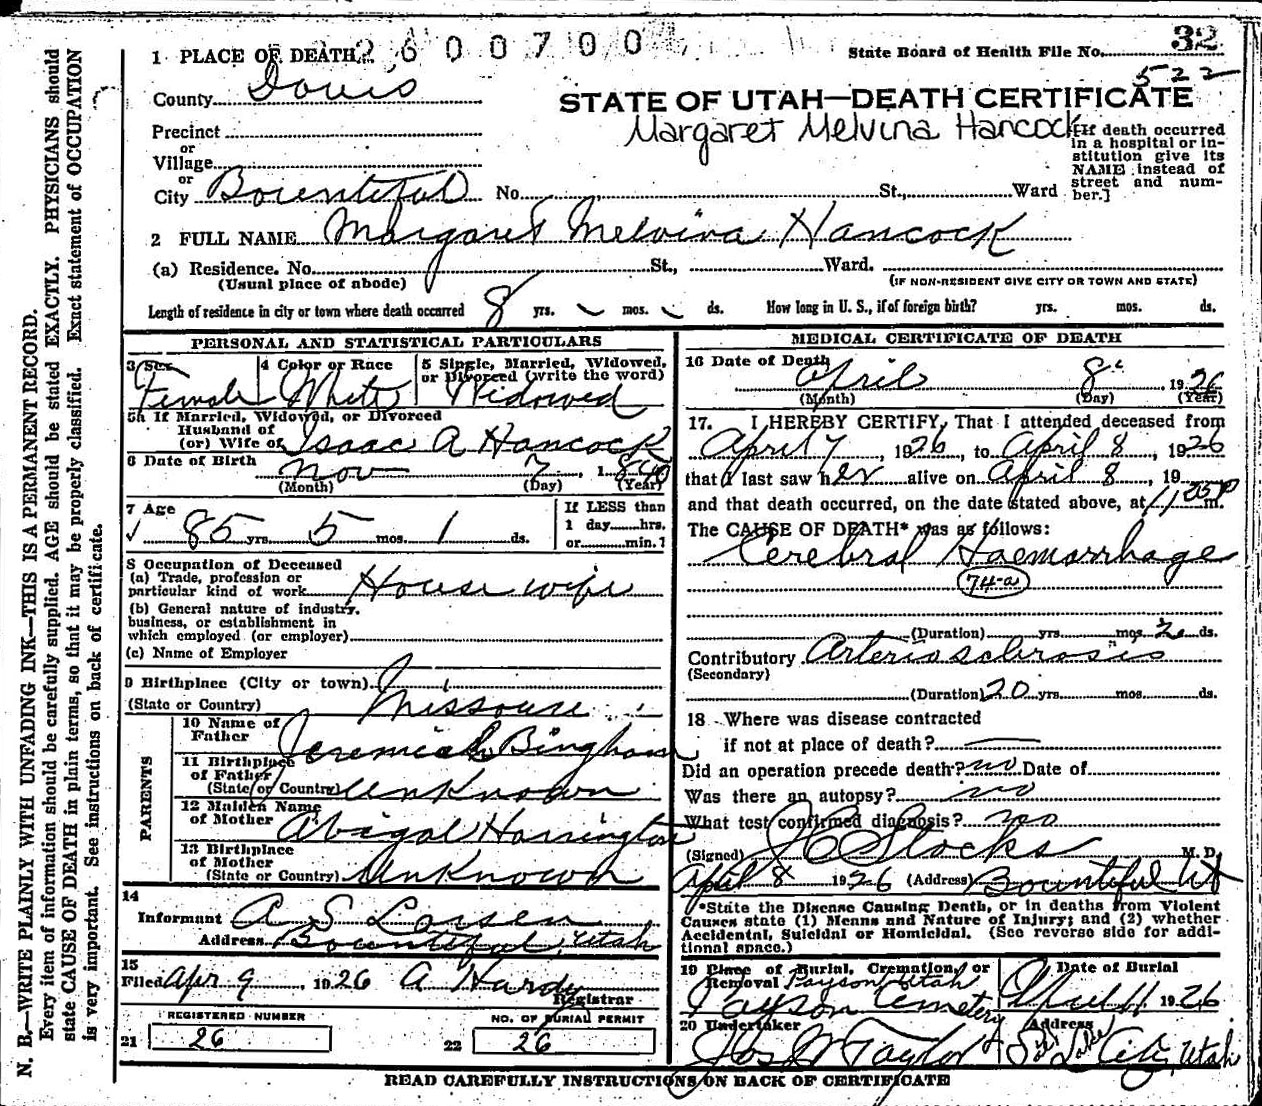 2600700
1 PLACE OF DEATH
State Board of Health File No. 32
522
County Davis
STATE OF UTAH—DEATH CERTIFICATE
Margaret Melvina Hancock
Precinct
or
Village
or
City Bountiful No. St., Ward
[If death occurred
in a hospital or in-
stitution give its
NAME instead of
street and num-
ber.]
2 FULL NAME Margaret Melvina Hancock
(a) Residence. No. St., Ward.
(Usual place of abode) (IF NON-RESIDENT GIVE CITY OR TOWN AND STATE)
Length of residence in city or town where death occurred 8 yrs. mos. ds. How long in U. S., if of foreign birth? yrs. mos. ds.
PERSONAL AND STATISTICAL PARTICULARS
3 Sex 4 Color or Race 5 Single, Married, Widowed,
or Divorced (write the word)
Female White Widowed
5a If Married, Widowed, or Divorced
Husband of
(or) Wife of Isaac A Hancock
6 Date of Birth Nov 7, 1840
(Month) (Day) (Year)
7 Age If LESS than
1 day hrs.
85 yrs. 5 mos. 1 ds. or min.?
8 Occupation of Deceased
(a) Trade, profession or
particular kind of work House wife
(b) General nature of industry,
business, or establishment in
which employed (or employer)
(c) Name of Employer
9 Birthplace (City or town)
(State or Country) Missouri
PARENTS
10 Name of
Father Jeremiah Bingham
11 Birthplace
of Father
(State or Country) Unknown
12 Maiden Name
of Mother Abigal Harrington
13 Birthplace
of Mother
(State or Country) Unknown
14
Informant A S Larsen
Address Bountiful, Utah
15
Filed Apr 9, 1926 A Hardy
Registrar
REGISTERED NUMBER NO. OF BURIAL PERMIT
21 26 22 26
MEDICAL CERTIFICATE OF DEATH
16 Date of Death
April 8, 1926
(Month) (Day) (Year)
17. I HEREBY CERTIFY, That I attended deceased from
April 7, 1926, to April 8, 1926
that I last saw her alive on April 8, 19
and that death occurred, on the date stated above, at m.
The CAUSE OF DEATH* was as follows:
Cerebral Haemorrhage
74-a
(Duration) yrs. mos. 2 ds.
Contributory Arteriosclerosis
(Secondary)
(Duration) 20 yrs. mos. ds.
18 Where was disease contracted
if not at place of death?
Did an operation precede death? no Date of
Was there an autopsy? no
What test confirmed diagnosis? no
(Signed) J C Stocks M. D.
April 8 1926 (Address) Bountiful Ut
*State the Disease Causing Death, or in deaths from Violent
Causes state (1) Means and Nature of Injury; and (2) whether
Accidental, Suicidal or Homicidal. (See reverse side for addi-
tional space.)
19 Place of Burial, Cremation, or Date of Burial
Removal Payson Utah
Payson Cemetery April 11 1926
20 Undertaker Address
Jos W Taylor Salt Lake City, Utah
READ CAREFULLY INSTRUCTIONS ON BACK OF CERTIFICATE
N. B.—WRITE PLAINLY WITH UNFADING INK—THIS IS A PERMANENT RECORD.
Every item of information should be carefully supplied. AGE should be stated EXACTLY. PHYSICIANS should
state CAUSE OF DEATH in plain terms, so that it may be properly classified. Exact statement of OCCUPATION
is very important. See instructions on back of certificate.